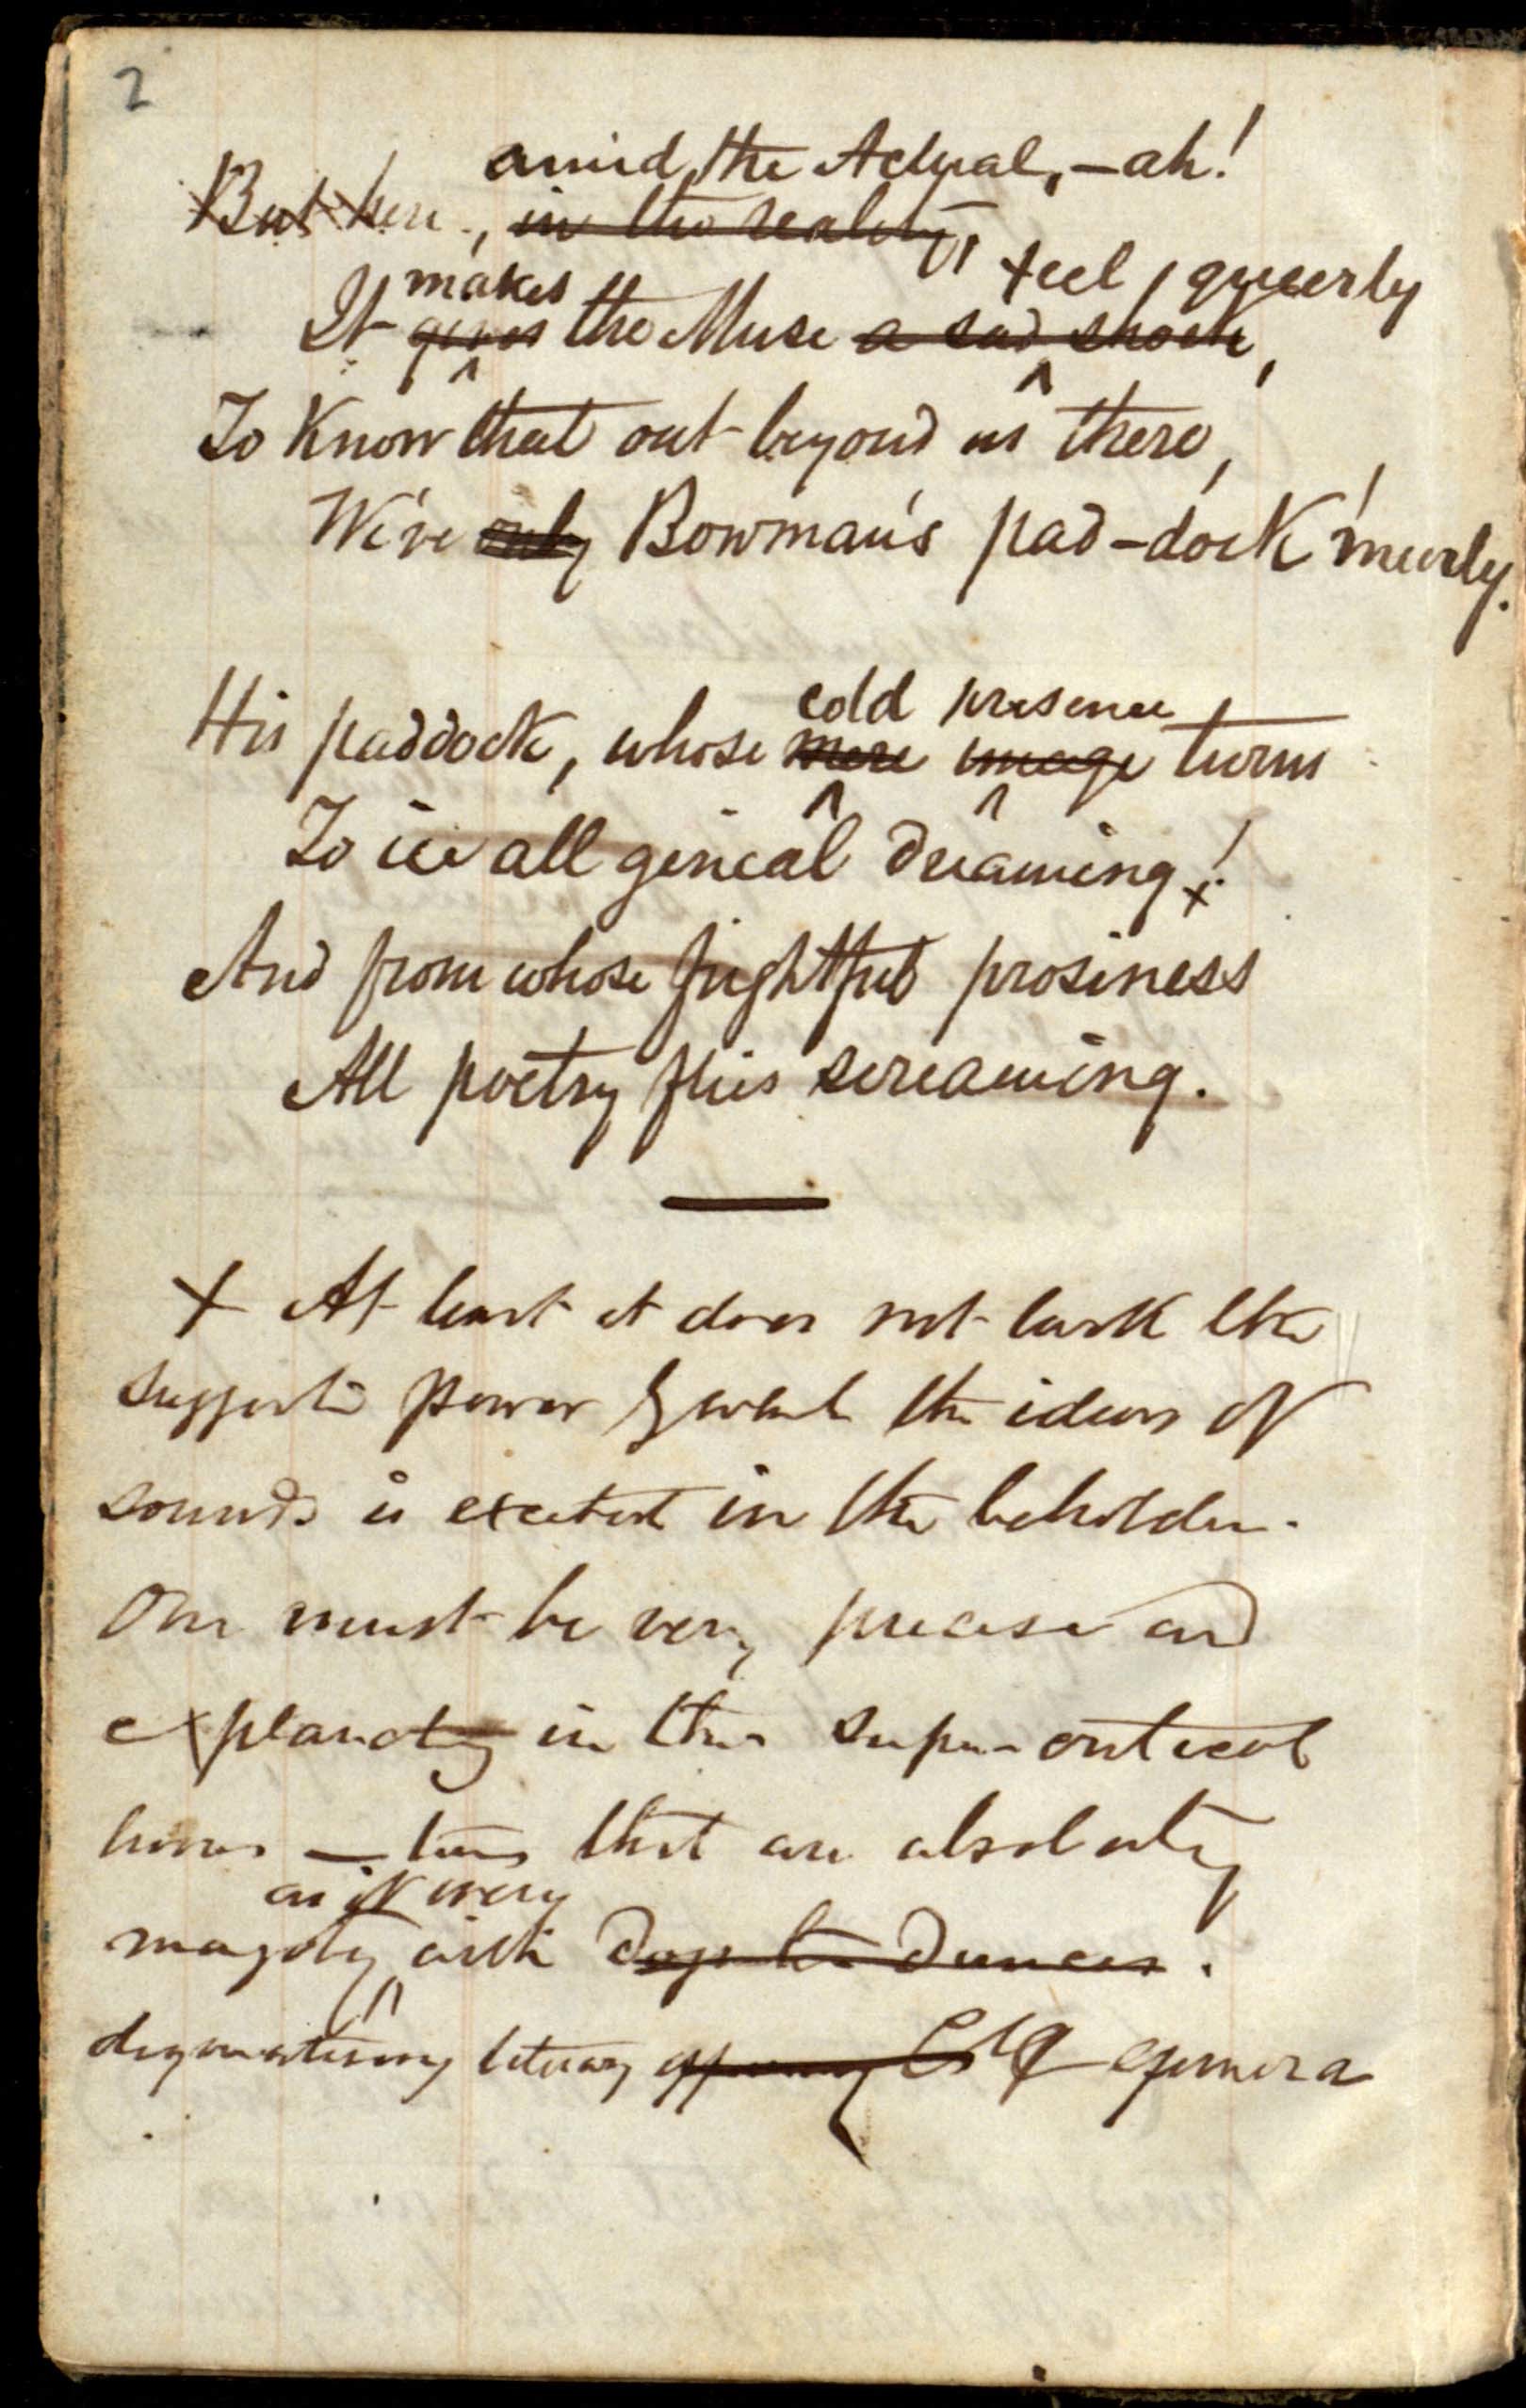 2
amid the Actual, – ah!
But here, in the reality,
makes feel, queerly
It gives the Muse a sad shock,
To Know that out beyond us there,
We've only Bowman's pad-dock merely.
cold presence
His paddock, whose mere image turns
To ice all genial dreaming!
x
And from whose frightful prosiness
All poetry flies screaming.
x At least it does not lack the
suggestive power by which the ideas of
sounds is excited in the beholder.
One must be very precise and
explanatory in these super-critical
times that are absolutely
as it were
with dunces.
dogmatising literary ephemera